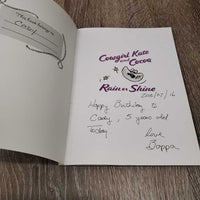 Cady
Cowgirl Kate
and Cocoa
Rain or Shine
Happy Birthday to
Cady, 5 years old
Today
Love
Boppa